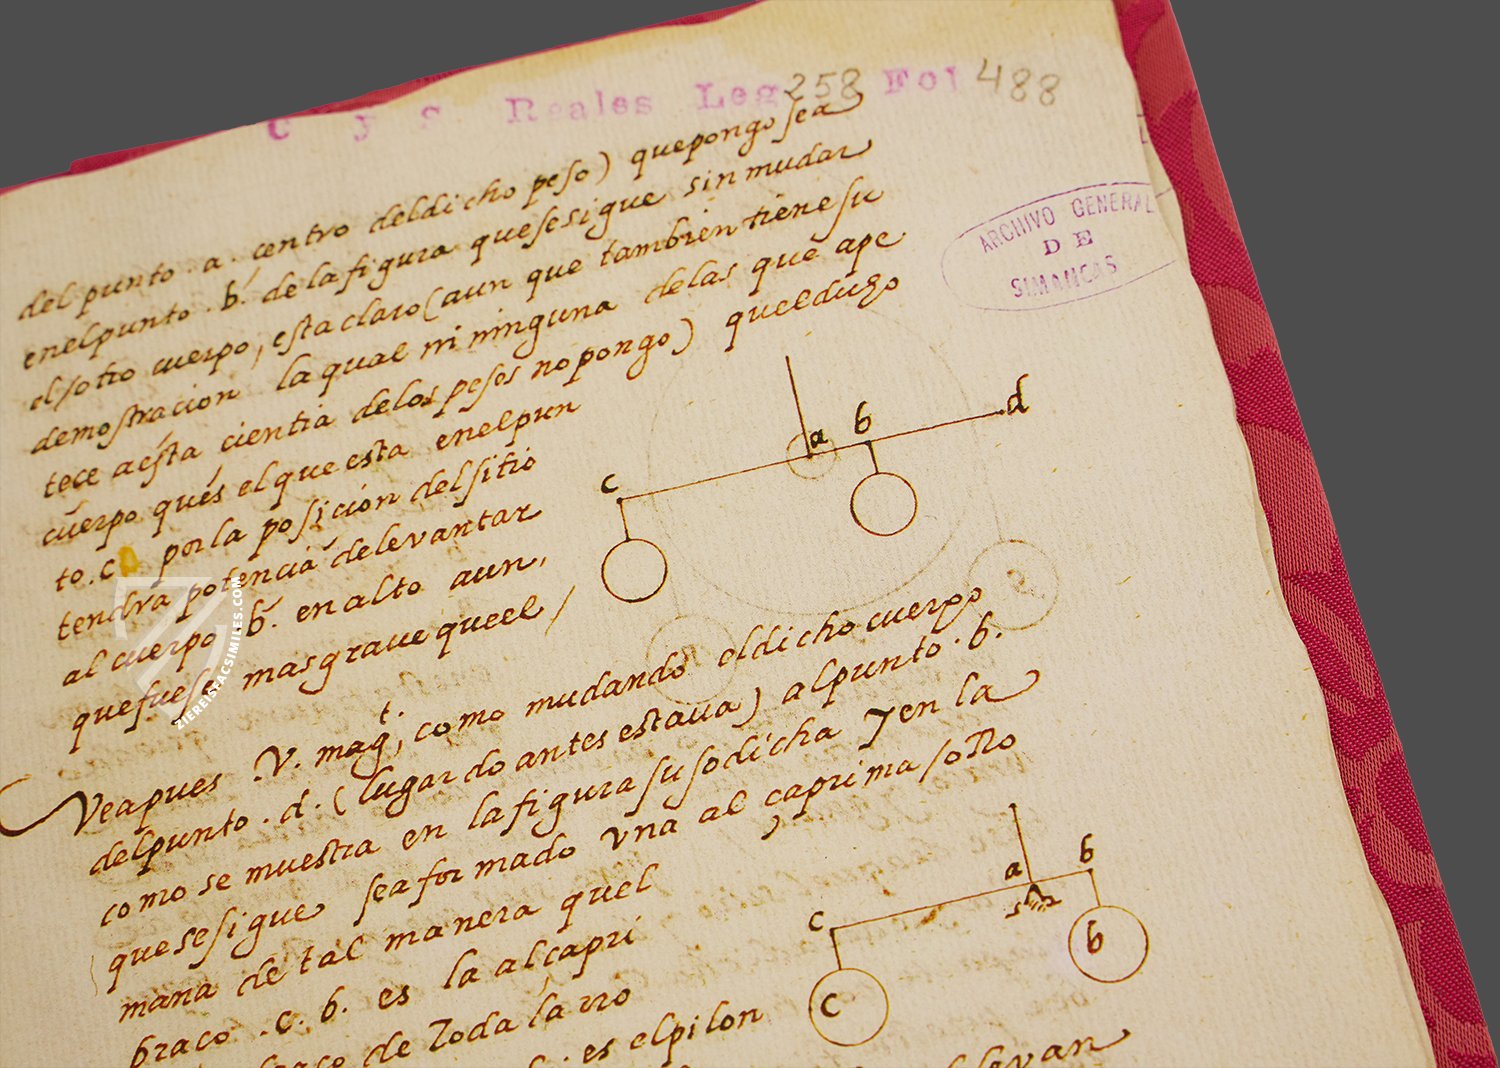 C y S Reales Leg 258 Fol 488
ARCHIVO GENERAL
DE
SIMANCAS
del punto . a . centro deldicho peso) quepongo sea
enelpunto . b. de lafigura quesesigue sin mudar
el sotio cuerpo, esta claro (aun que tambien tiene su
demostracion la qual ni ninguna delas que ape
tece aesta cientia delos pesos no pongo) queelduzo
cuerpo qués el que esta enelpun
to . c. por la posicion del sitio
tendra potencia delevantar
al cuerpo . b. en alto aun,
quefuese mas graue queel
a b d
c
Veapues .V. mag.t, como mudando eldicho cuerpo
delpunto . d. (lugar do antes estaua) alpunto . b.
como se muestra en lafigura susodicha y en la
quesesigue sea formado vna al çaprima sotto
mana de tal manera quel
braço . c. b. es la alçapri
de toda la rro
. es elpilon
levan
a b
c
b
c
ZIEREISFACSIMILES.COM